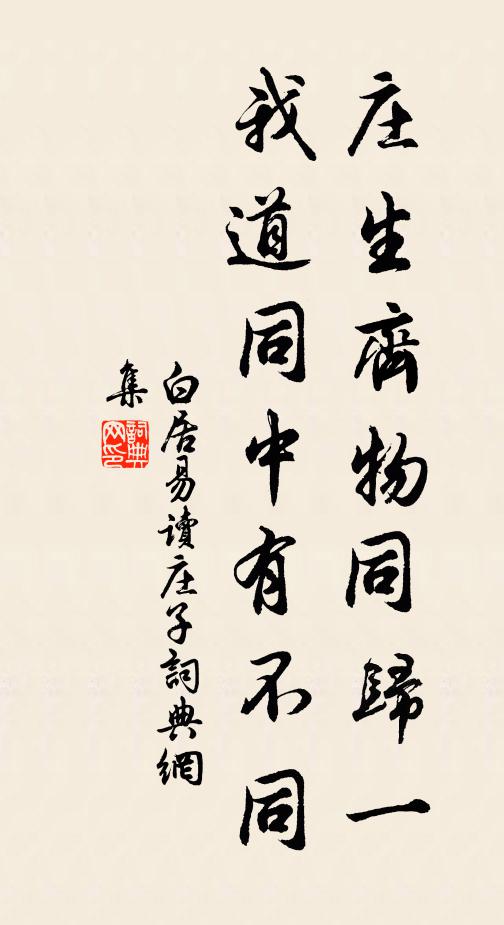 庄生齊物同歸一
我道同中有不同
白居易讀庄子詞典網
集
詞典
网印